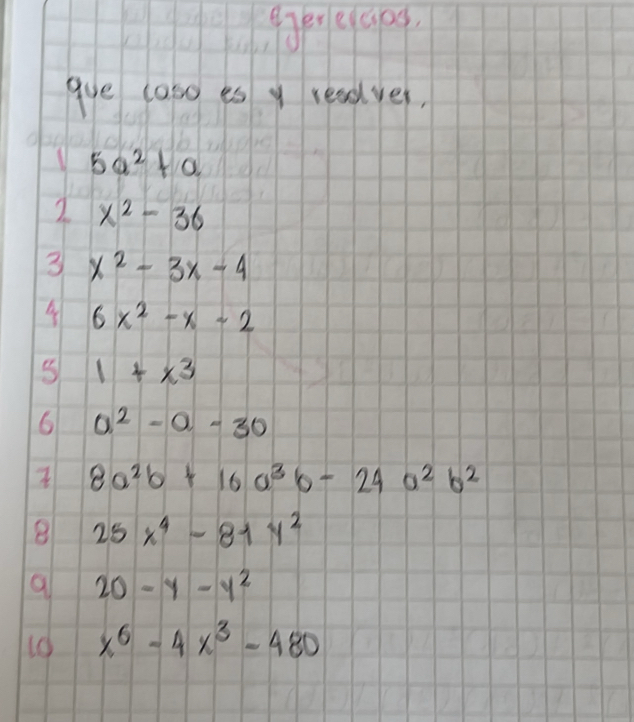 Ejercicios.
que caso es y resolver.
1 5a² + a
2 x² - 36
3 x² - 3x - 4
4 6x² - x - 2
5 1 + x3
6 a² - a - 30
7 8a²b + 16a³b - 24a²b²
8 25x⁴ - 81y²
9 20 - y - y²
10 x⁶ - 4x³ - 480